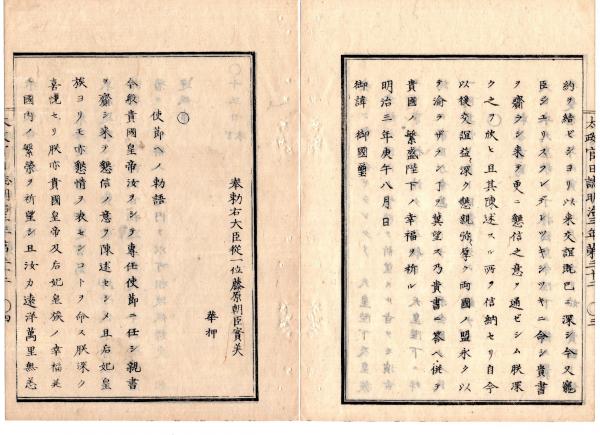 太政官日誌明治三年第三十二 〇三
約ヲ結ビシヨリ以來交誼既已ニ深シ今又寵
臣 ニ命シ貴書
ヲ齎ラシ來ヲ更ニ懇信之意ヲ通ビシム朕深
ク之ヲ欣ヒ且其陳述スル所ヲ信納セリ自今
以後交誼益深ク懇親弥厚ク両國ノ盟永ク以
テ渝ラザラン 冀望ス乃貴書ニ答ヘ併テ
貴國ノ繁盛陛下ノ幸福ヲ祈ル
明治三年庚午八月日
御諱 御國璽
奉勅右大臣從一位藤原朝臣實美
華押
使節ヘノ勅語
今般貴國皇帝汝ヲシテ專任使節ニ任シ親書
ヲ齎シ來ヲ懇信ノ意ヲ陳述セシメ且后妃皇
族ヨリモ亦懇情ヲ表センコトヲ命ス朕深ク
喜悅セリ朕亦貴國皇帝及后妃皇族ノ幸福并
國内ノ繁榮ヲ祈望シ且汝カ遠洋萬里無恙
〇四